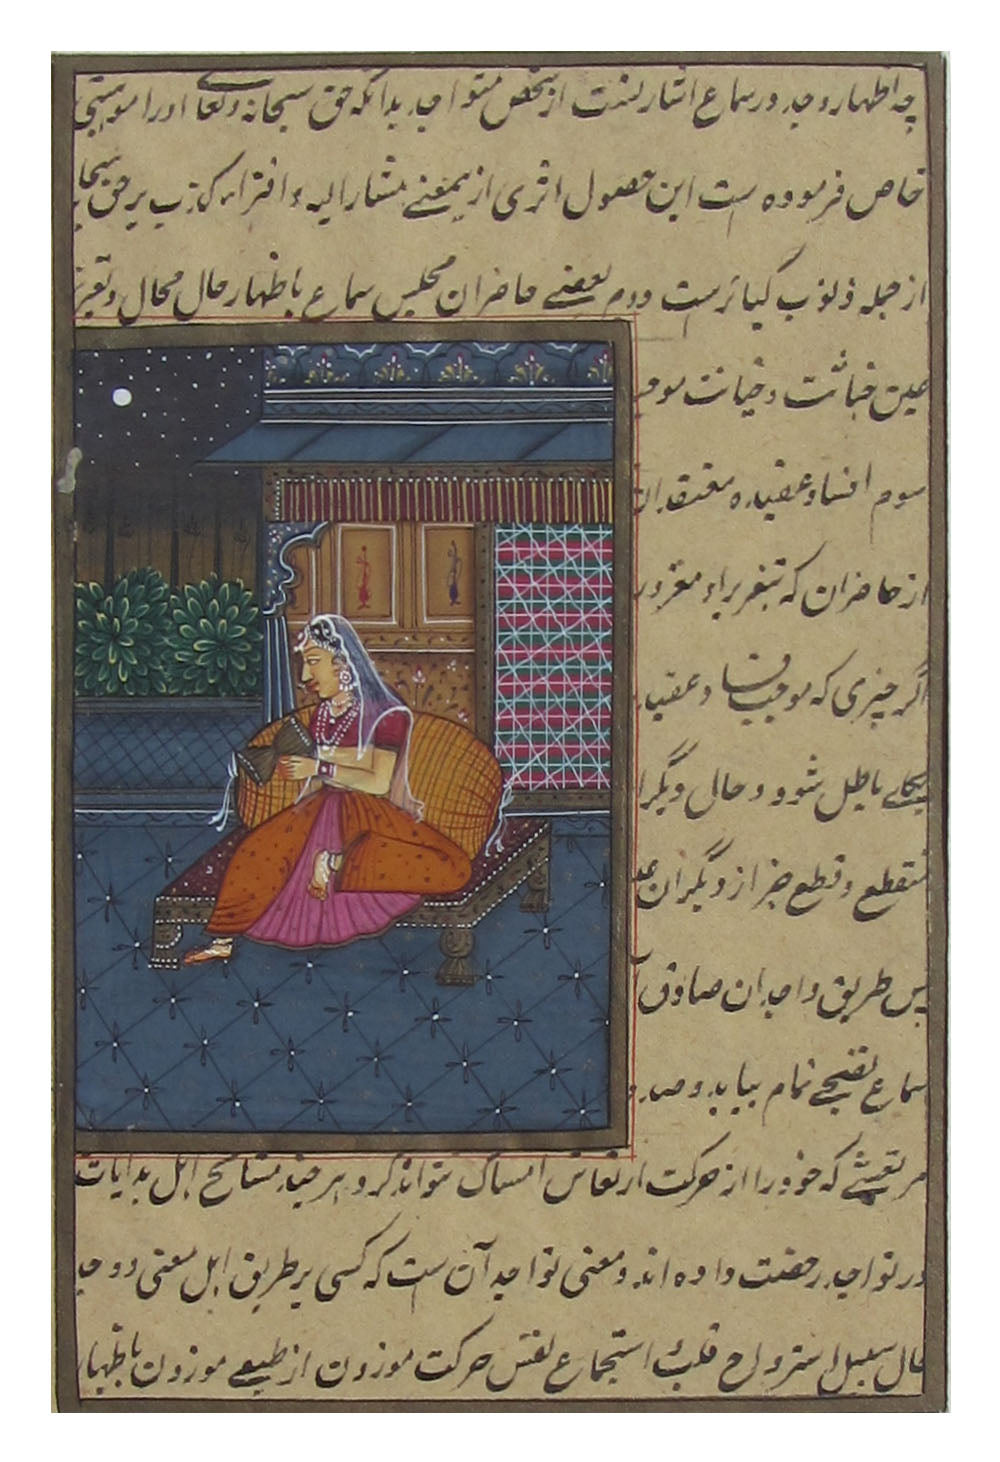 چه اظهار وجد در سماع اشارتست از شخص متواجد بدانکه حق سبحانه وتعالی اورا موهبتی
خاص فرموده است این حصول اثری از یمعنے مشار الیه و افتراء کذب برحق سبحا
از جمله ذنوب کبائرست دوم بعضے حاضران مجلس سماع باظهار حال محال و تغریر
عین خباثت و خیانت بود
سوم افساد عقیده معتقدان
از حاضران که تبغریر او مغرور
اگر چیزی که موجب فساد عقید
باطل شود و حال دیگرا
منقطع و قطع خبر از دیگران
پس طریق واجدان صادق
سماع تمام بیاید و صد
مرتعشے که خود را از حرکت ارتعاش امساک نتواند کرد و هر چند مشائخ اهل بدایات
در تواجد رخصت داده اند و معنی تواجد آن ست که کسی بر طریق اهل معنی دوجد
حال سبیل استرواح قلب و استجماع نفس حرکت موزون از طبیعے موزون باظهار